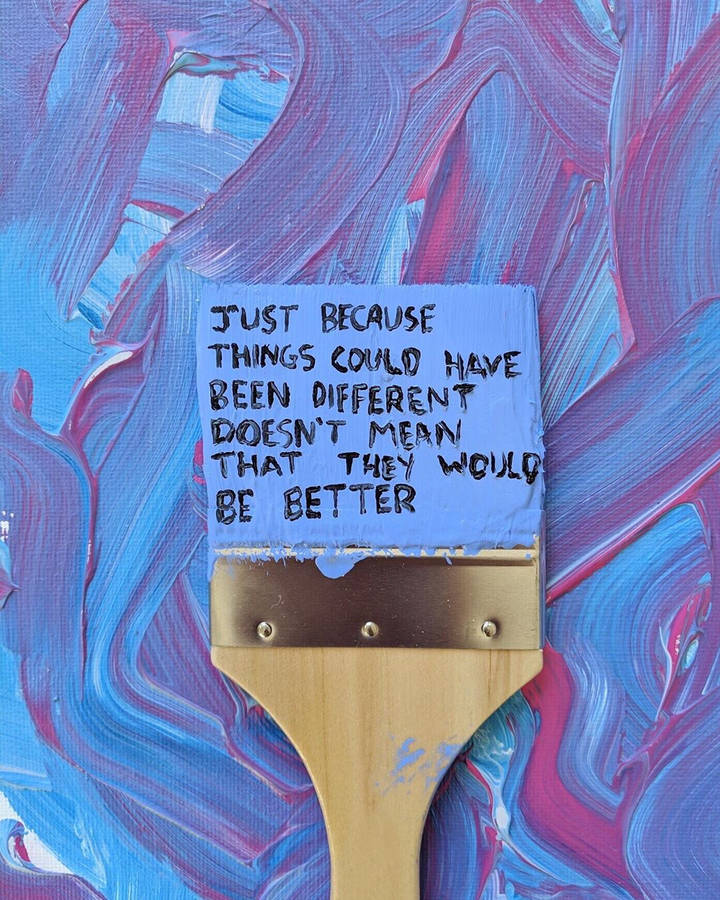 JUST BECAUSE
THINGS COULD HAVE
BEEN DIFFERENT
DOESN'T MEAN
THAT THEY WOULD
BE BETTER